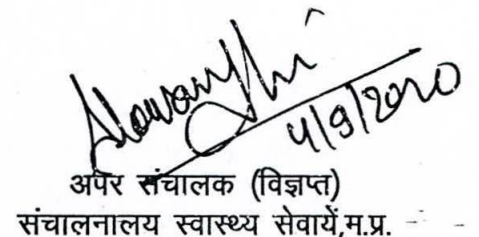 4/9/2020
अपर संचालक (विज्ञप्त)
संचालनालय स्वास्थ्य सेवायें,म.प्र.